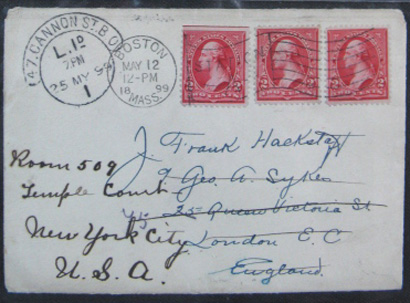 47. CANNON ST. B.O
L.1D
7PM
25 MY 9
1
BOSTON
MAY 12
12-PM
18 99
MASS.
2 2
2 2
2 2
J. Frank Hackstaff
Geo. A. Sykes
35 Queen Victoria St.
London E. C
England.
Room 509
Temple Court
New York City
U. S. A.